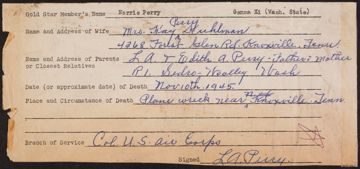 Gold Star Member's Name Harris Perry Gamma Xi (Wash. State)
Perry
Name and Address of Wife Mrs. Kay Stuhlman
4268 Forest Glen Rd. Knoxville, Tenn
Name and Address of Parents L.A. & Edith A. Perry - Father & Mother
or Closest Relatives R1. Sedro-Woolley Wash
Date (or approximate date) of Death Nov. 10th 1945
Place and Circumstance of Death Plane wreck near Knoxville Tenn
Branch of Service Col. U.S. Air Corps
Signed L.A. Perry.